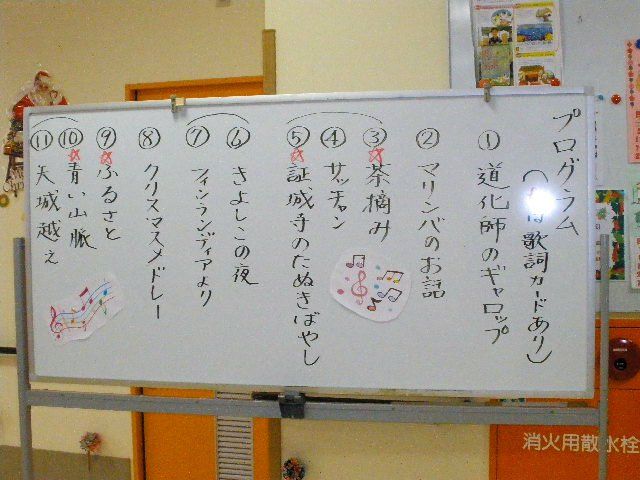 プログラム
歌詞カードあり)
① 道化師のギャロップ
② マリンバのお話
③ ☆茶摘み
④ サッチャン
⑤ ☆証城寺のたぬきばやし
⑥ きよしこの夜
⑦ フィンランディアより
⑧ クリスマスメドレー
⑨ ☆ふるさと
⑩ ☆青い山脈
⑪ 天城越え
消火用散水栓